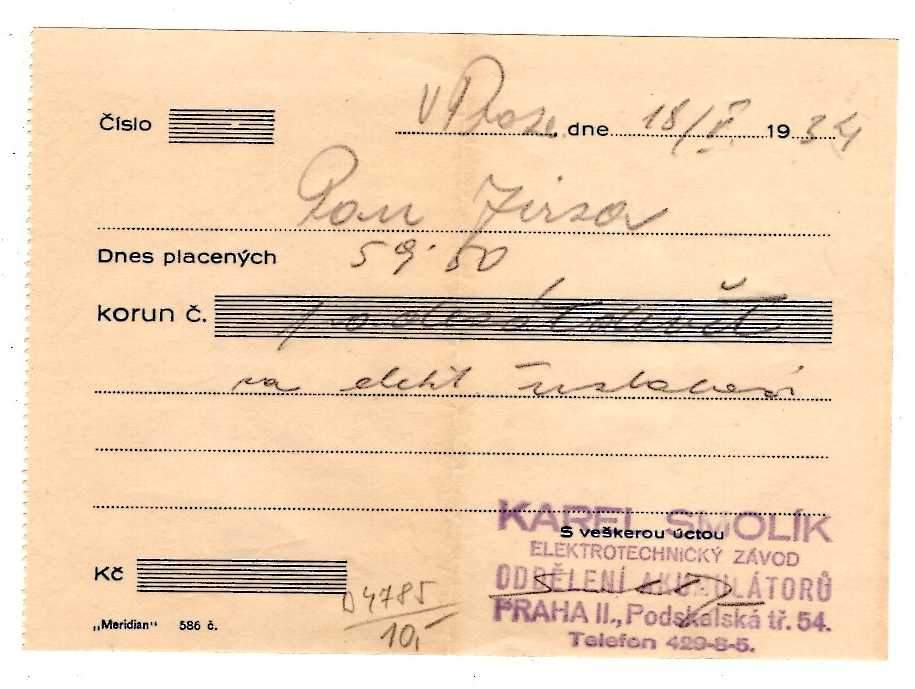 Číslo
v Praze, dne 18/V. 1934
Pan Jirsa
Dnes placených 59·50
korun č. padesátdevět
za elekt. instalaci
KAREL SMOLÍK
S veškerou úctou
ELEKTROTECHNICKÝ ZÁVOD
Kč
ODDĚLENÍ AKUMULÁTORŮ
D 4785
PRAHA II., Podskalská tř. 54.
„Meridian" 586 č.
10,-
Telefon 429-8-5.